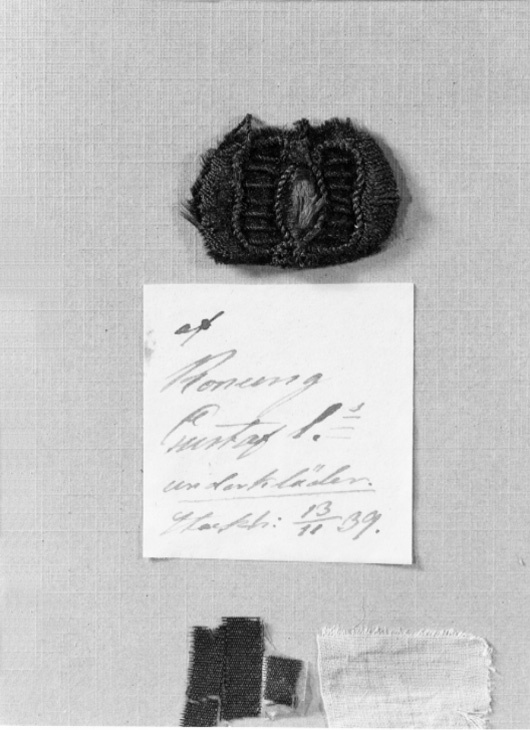 af
Konung
Gustaf I.s
underkläder.
13/11 39.